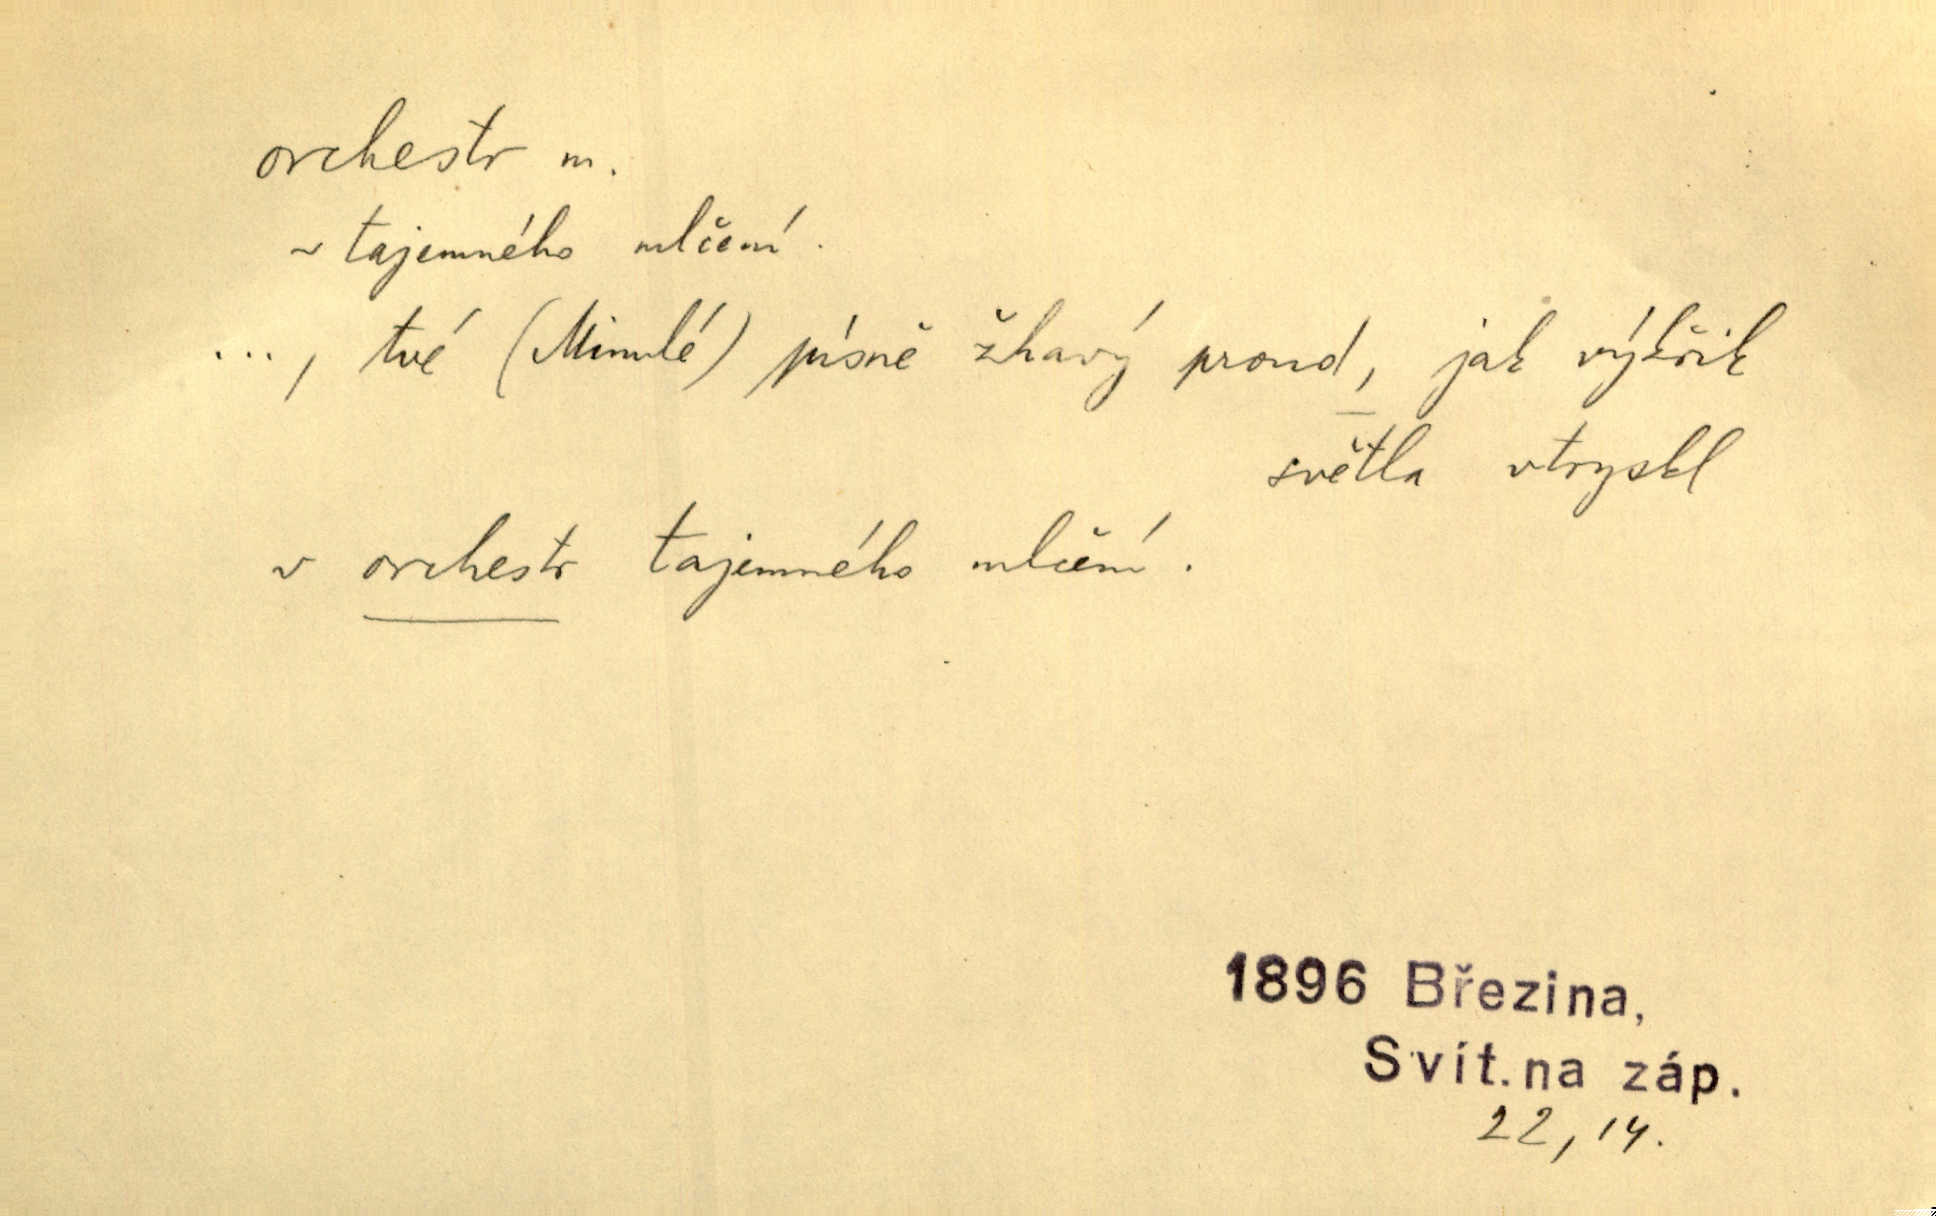 orchestr m.
~ tajemného mlčení.
..., tvé (Minulé) písně žhavý proud, jak výkřik
světla vtryskl
v orchestr tajemného mlčení.
1896 Březina,
Svít. na záp.
22, 14.